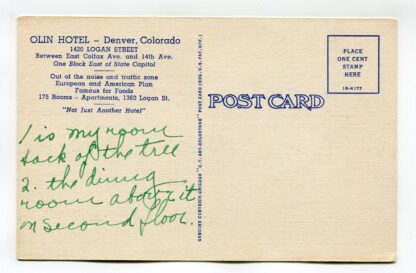 OLIN HOTEL – Denver, Colorado
1420 LOGAN STREET
Between East Colfax Ave. and 14th Ave.
One Block East of State Capitol
Out of the noise and traffic zone
European and American Plan
Famous for Foods
175 Rooms – Apartments, 1360 Logan St.
"Not Just Another Hotel"
1 is my room
back of the tree
2. the dining
room above it
on second floor.
GENUINE CURTEICH-CHICAGO "C. T. ART-COLORTONE" POST CARD (REG. U.S. PAT. OFF.)
POST CARD
PLACE
ONE CENT
STAMP
HERE